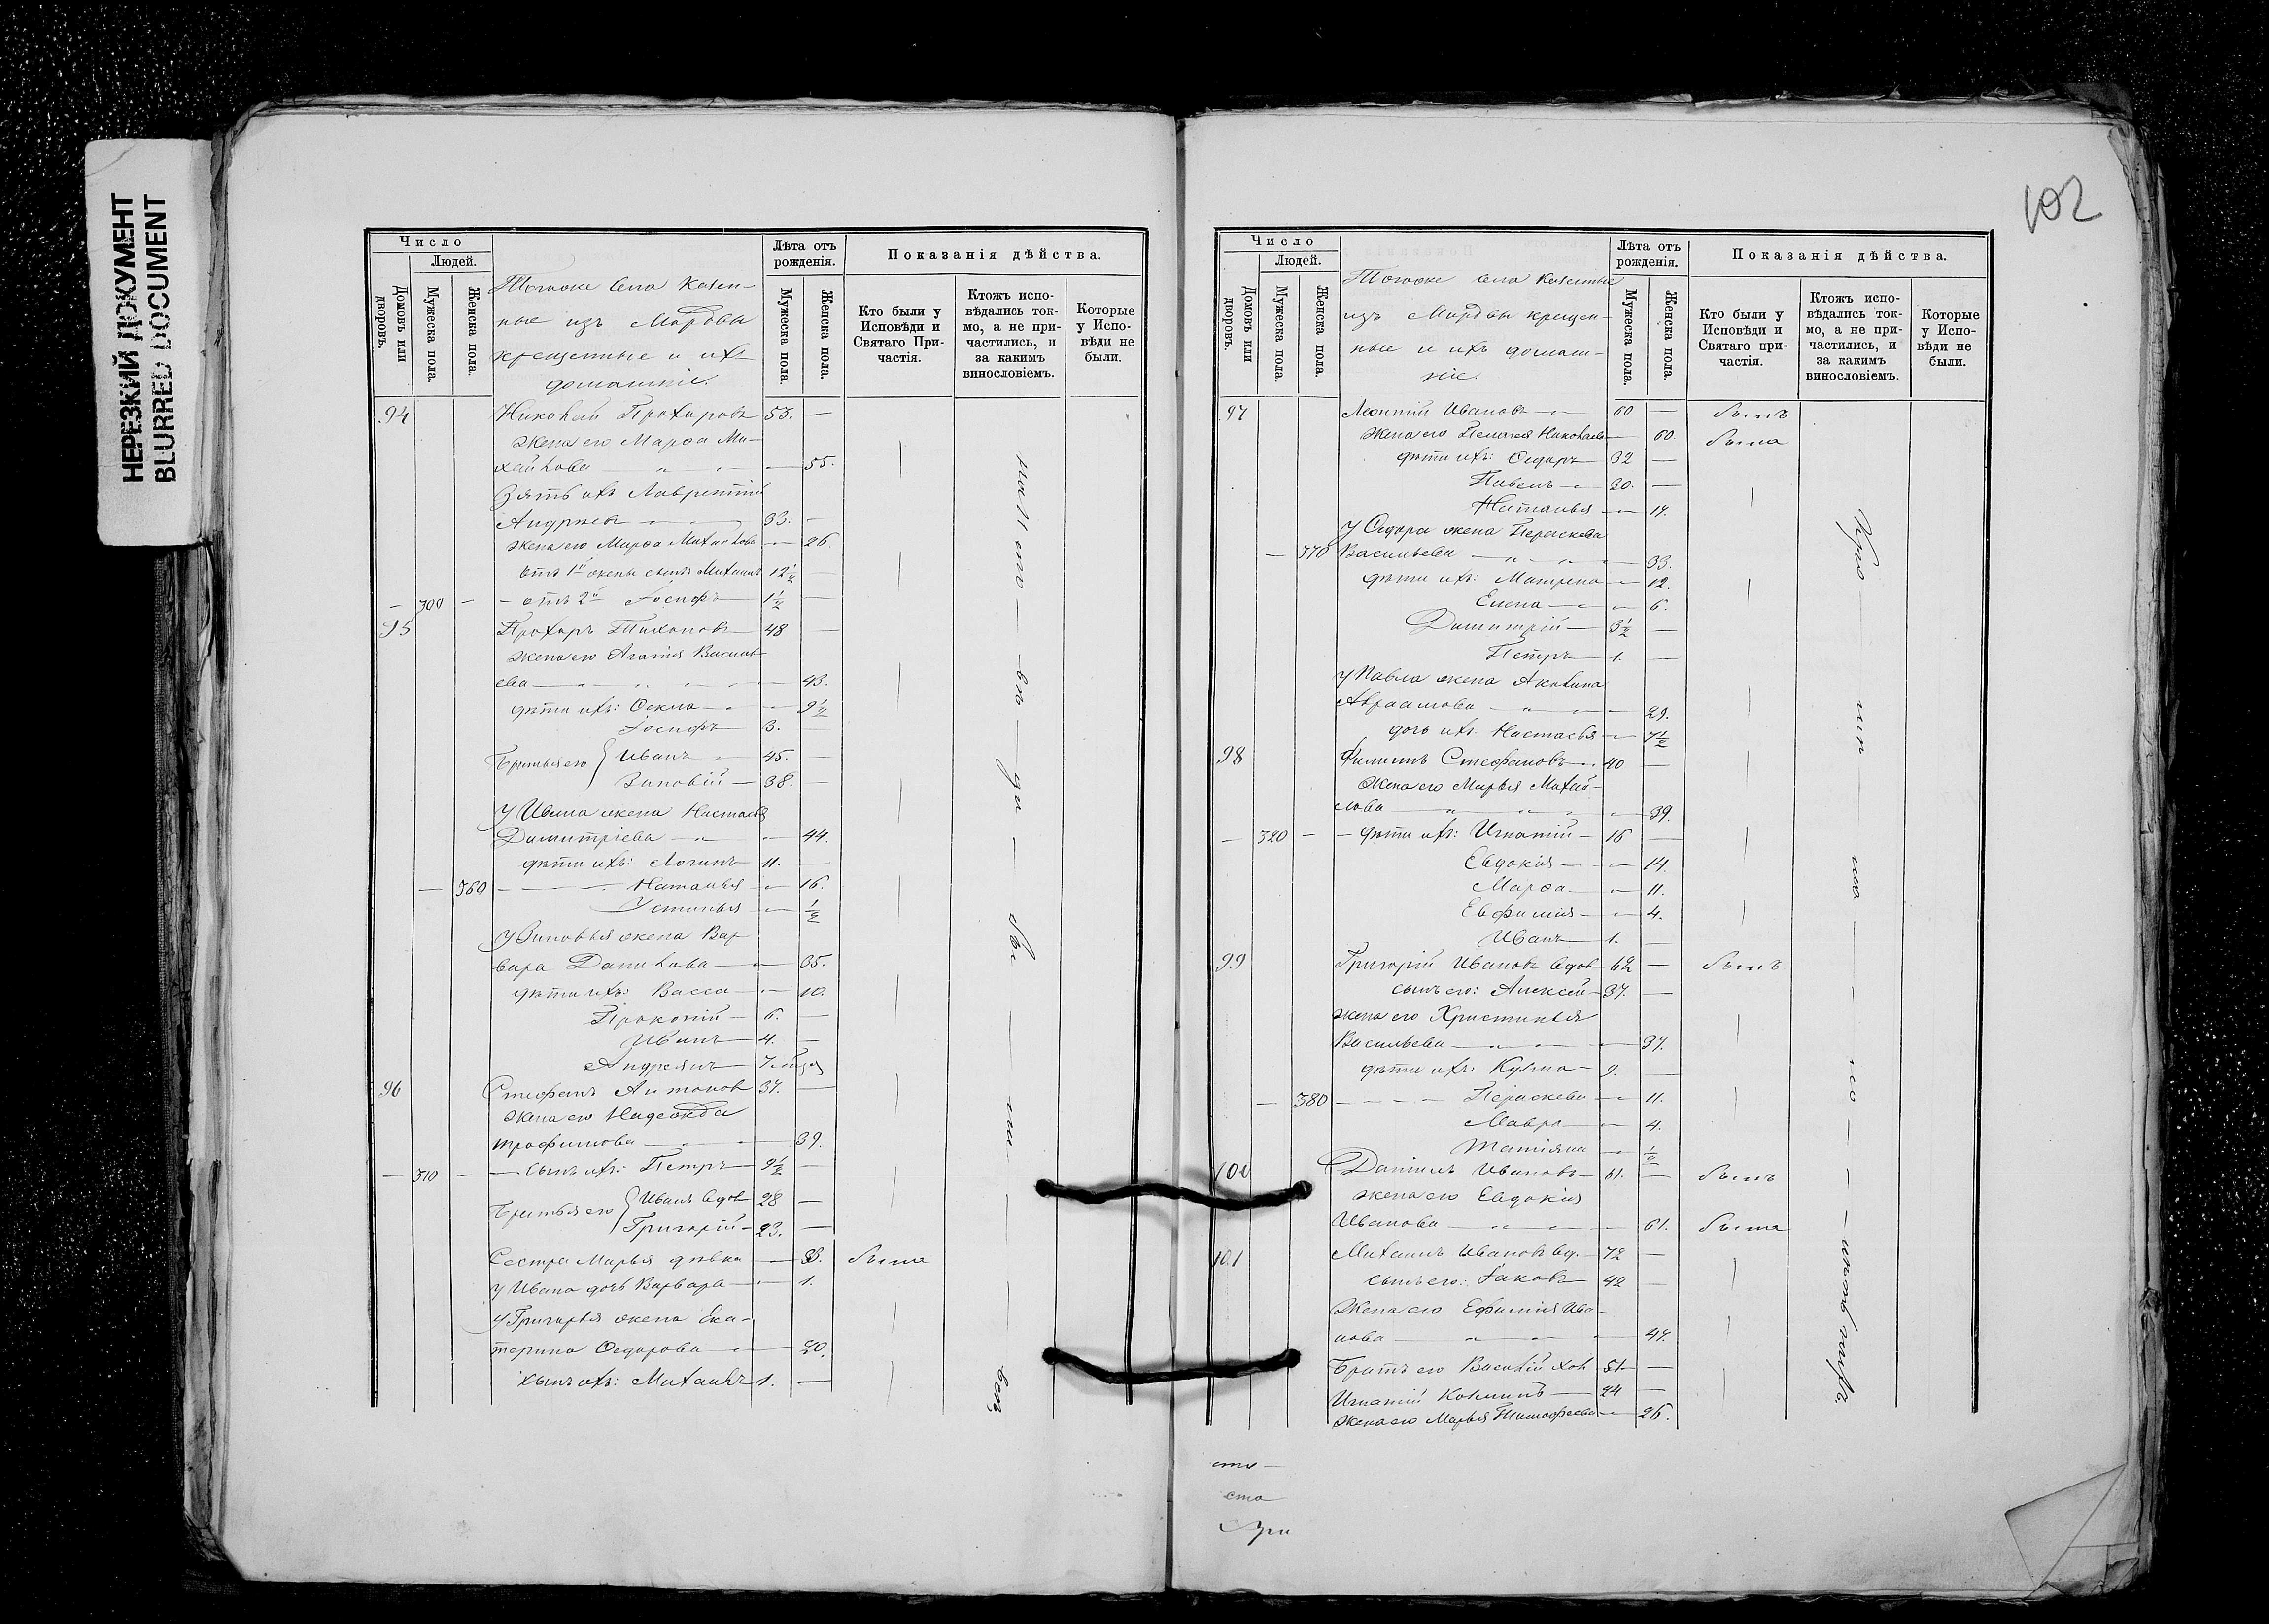 НЕРЕЗКИЙ ДОКУМЕНТ
BLURRED DOCUMENT
Число
Людей.
Домовъ или дворовъ.
Мужеска пола.
Женска пола.
Тогоже села Казен-
ные изъ Мордвы
крещенные и ихъ
домашніе.
Лѣта отъ рожденія.
Мужеска пола.
Женска пола.
Показанія дѣйства.
Кто были у Исповѣди и Святаго Причастія.
Ктожъ исповѣдались токмо, а не причастились, и за какимъ винословіемъ.
Которые у Исповѣди не были.
94 Николай Прохоровъ 53. —
жена его Марѳа Ми-
хайлова — 55.
Зять ихъ Лаврентій
Андреевъ 33. —
жена его Марѳа Михайлова — 26.
отъ 1й жены сынъ Михаилъ 12½ —
— 300 — — отъ 2й Іосифъ 1½ —
95 Прохоръ Тихоновъ 48 —
жена его Агаѳія Василь-
ева — 43.
дѣти ихъ: Ѳекла — 9½
Іосифъ 3. —
Братья его { Иванъ 45. —
Зиновій — 38. —
У Ивана жена Настасья
Димитріева — 44.
дѣти ихъ: Логинъ 11. —
— 360 — Наталья — 16.
Устинья — ½
У Зиновья жена Вар-
вара Данилова — 35.
дѣти ихъ: Васса — 10.
Прокопій — 6. —
Иванъ 4. —
Андреянъ —
96 Стефанъ Антонов 37. —
жена его Надежда
Трофимова — 39.
— 310 — — сынъ ихъ: Петръ 9½ —
Братья его { Иванъ вдов 28 —
Григорій — 23. —
Сестра Марья дѣвка — 33. была
У Ивана дочь Варвара — 1.
У Григорья жена Ека-
терина Ѳедорова — 20.
сынъ ихъ: Михаилъ 1. —
102
Число
Людей.
Домовъ или дворовъ.
Мужеска пола.
Женска пола.
Тогоже села Казенные
изъ Мордвы крещен-
ные и ихъ домаш-
ніе.
Лѣта отъ рожденія.
Мужеска пола.
Женска пола.
Показанія дѣйства.
Кто были у Исповѣди и Святаго причастія.
Ктожъ исповѣдались токмо, а не причастились, и за какимъ винословіемъ.
Которые у Исповѣди не были.
97 Леонтій Ивановъ 60 — былъ
жена его Пелагея Николаева — 60. была
дѣти ихъ: Ѳедоръ 32 —
Павелъ 30. —
Наталья — 17.
У Ѳедора жена Параскева
— 370 Васильева — 33.
дѣти ихъ: Матрена — 12.
Елена — 6.
Димитрій — 3½ —
Петръ 1. —
У Павла жена Акулина
Авраамова — 29.
дочь ихъ: Настасья — 7½
98 Филиппъ Стефановъ 40 —
жена его Марья Михай-
лова — 39.
— 320 — — дѣти ихъ: Игнатій — 16 —
Евдокія — 14.
Марѳа — 11.
Евфимія — 4.
Иванъ 1. —
99 Григорій Ивановъ вдов 62 — былъ
сынъ его: Алексѣй — 37. —
жена его Христинья
Васильева — 37.
дѣти ихъ: Кузма — 9. —
— 380 — Параскева — 11.
Мавра — 4.
Татіяна — ½
100 Даніилъ Ивановъ — 61. — былъ
жена его Евдокія
Иванова — 61. была
101 Михаилъ Ивановъ вд. — 72 —
сынъ его: Іаковъ 42 —
жена его Ефимія Ива-
нова — 47.
Братъ его Василій хол 51 —
Игнатій Козминъ — 24 —
жена его Марья Тимофеева — 26.
сто